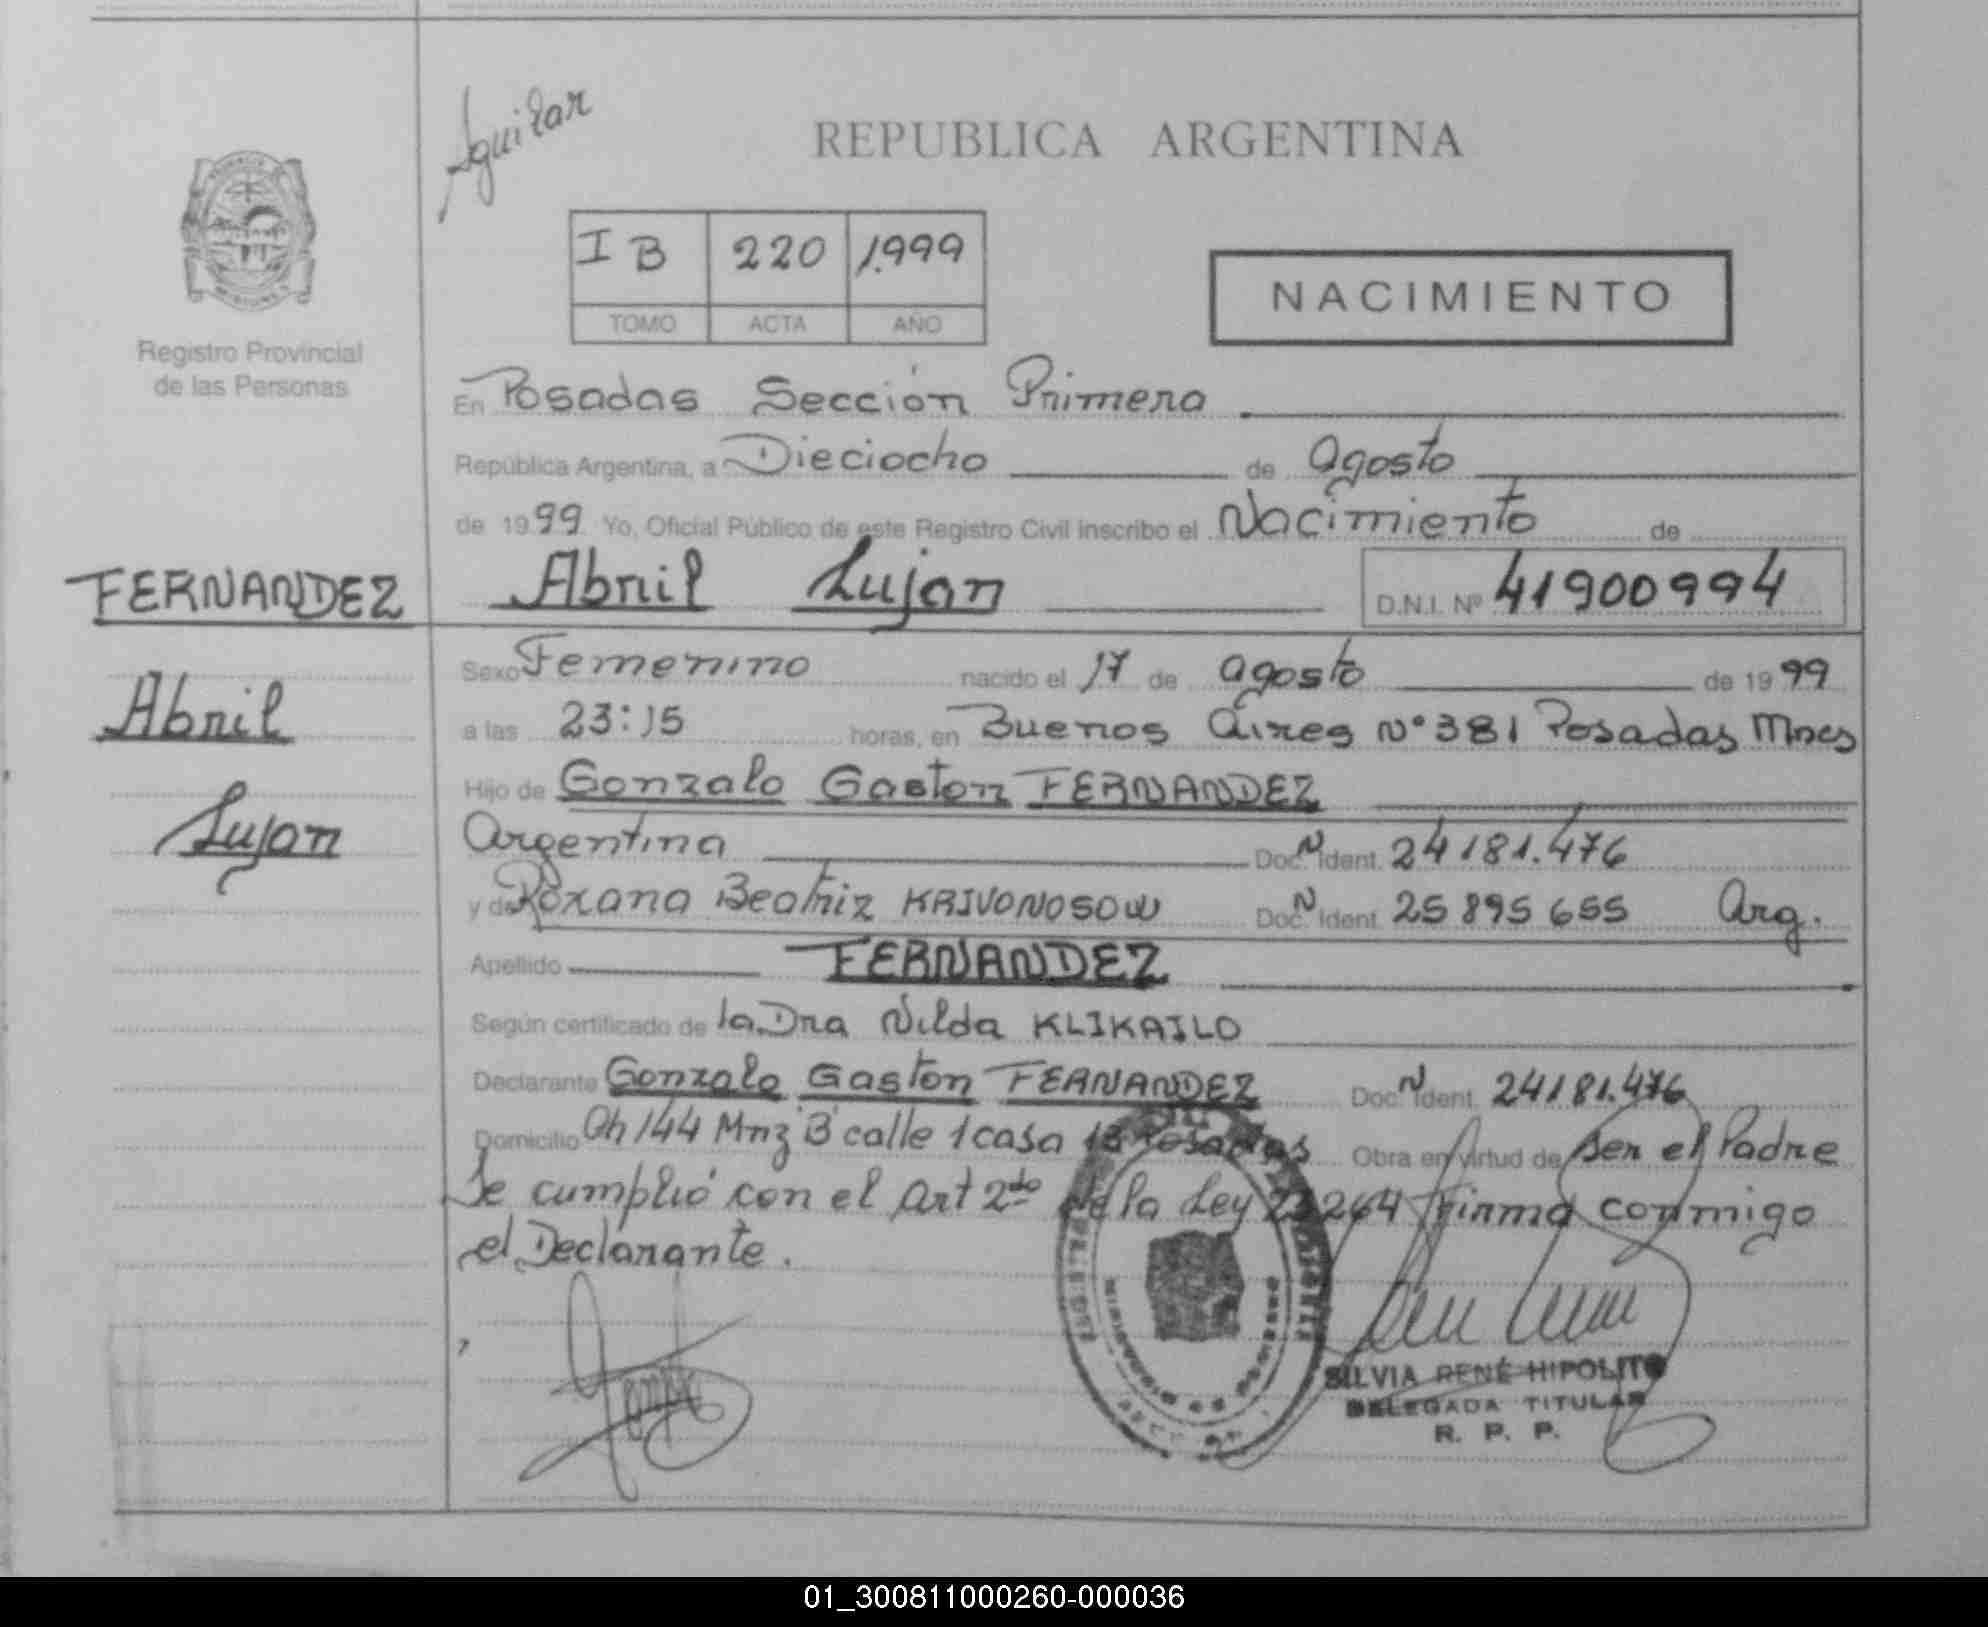 Aguilar
REPUBLICA ARGENTINA
I B 220 1.999
TOMO ACTA AÑO
NACIMIENTO
Registro Provincial
de las Personas
En Posadas Sección Primera
República Argentina, a Dieciocho de Agosto
de 1999 Yo, Oficial Público de este Registro Civil inscribo el Nacimiento de
FERNANDEZ
Abril Lujan D.N.I. Nº 41900994
Abril
Lujan
Sexo Femenino nacido el 17 de agosto de 1999
a las 23:15 horas, en Buenos Aires Nº 381 Posadas Mnes
Hijo de Gonzalo Gaston FERNANDEZ
Argentina Doc. N Ident. 24181.476
y de Roxana Beatriz KRIVONOSOW Doc. N Ident. 25895655 Arg.
Apellido FERNANDEZ
Según certificado de la Dra Nilda KLIKAILO
Declarante Gonzalo Gaston FERNANDEZ Doc. N Ident. 24181.476
Domicilio Ch 144 Mnz B calle 1 casa 13 Posadas Obra en virtud de ser el Padre
Se cumplió con el Art 2do de la Ley 23264 Firma conmigo
el Declarante.
SILVIA RENÉ HIPOLITO
DELEGADA TITULAR
R. P. P.
01_300811000260-000036